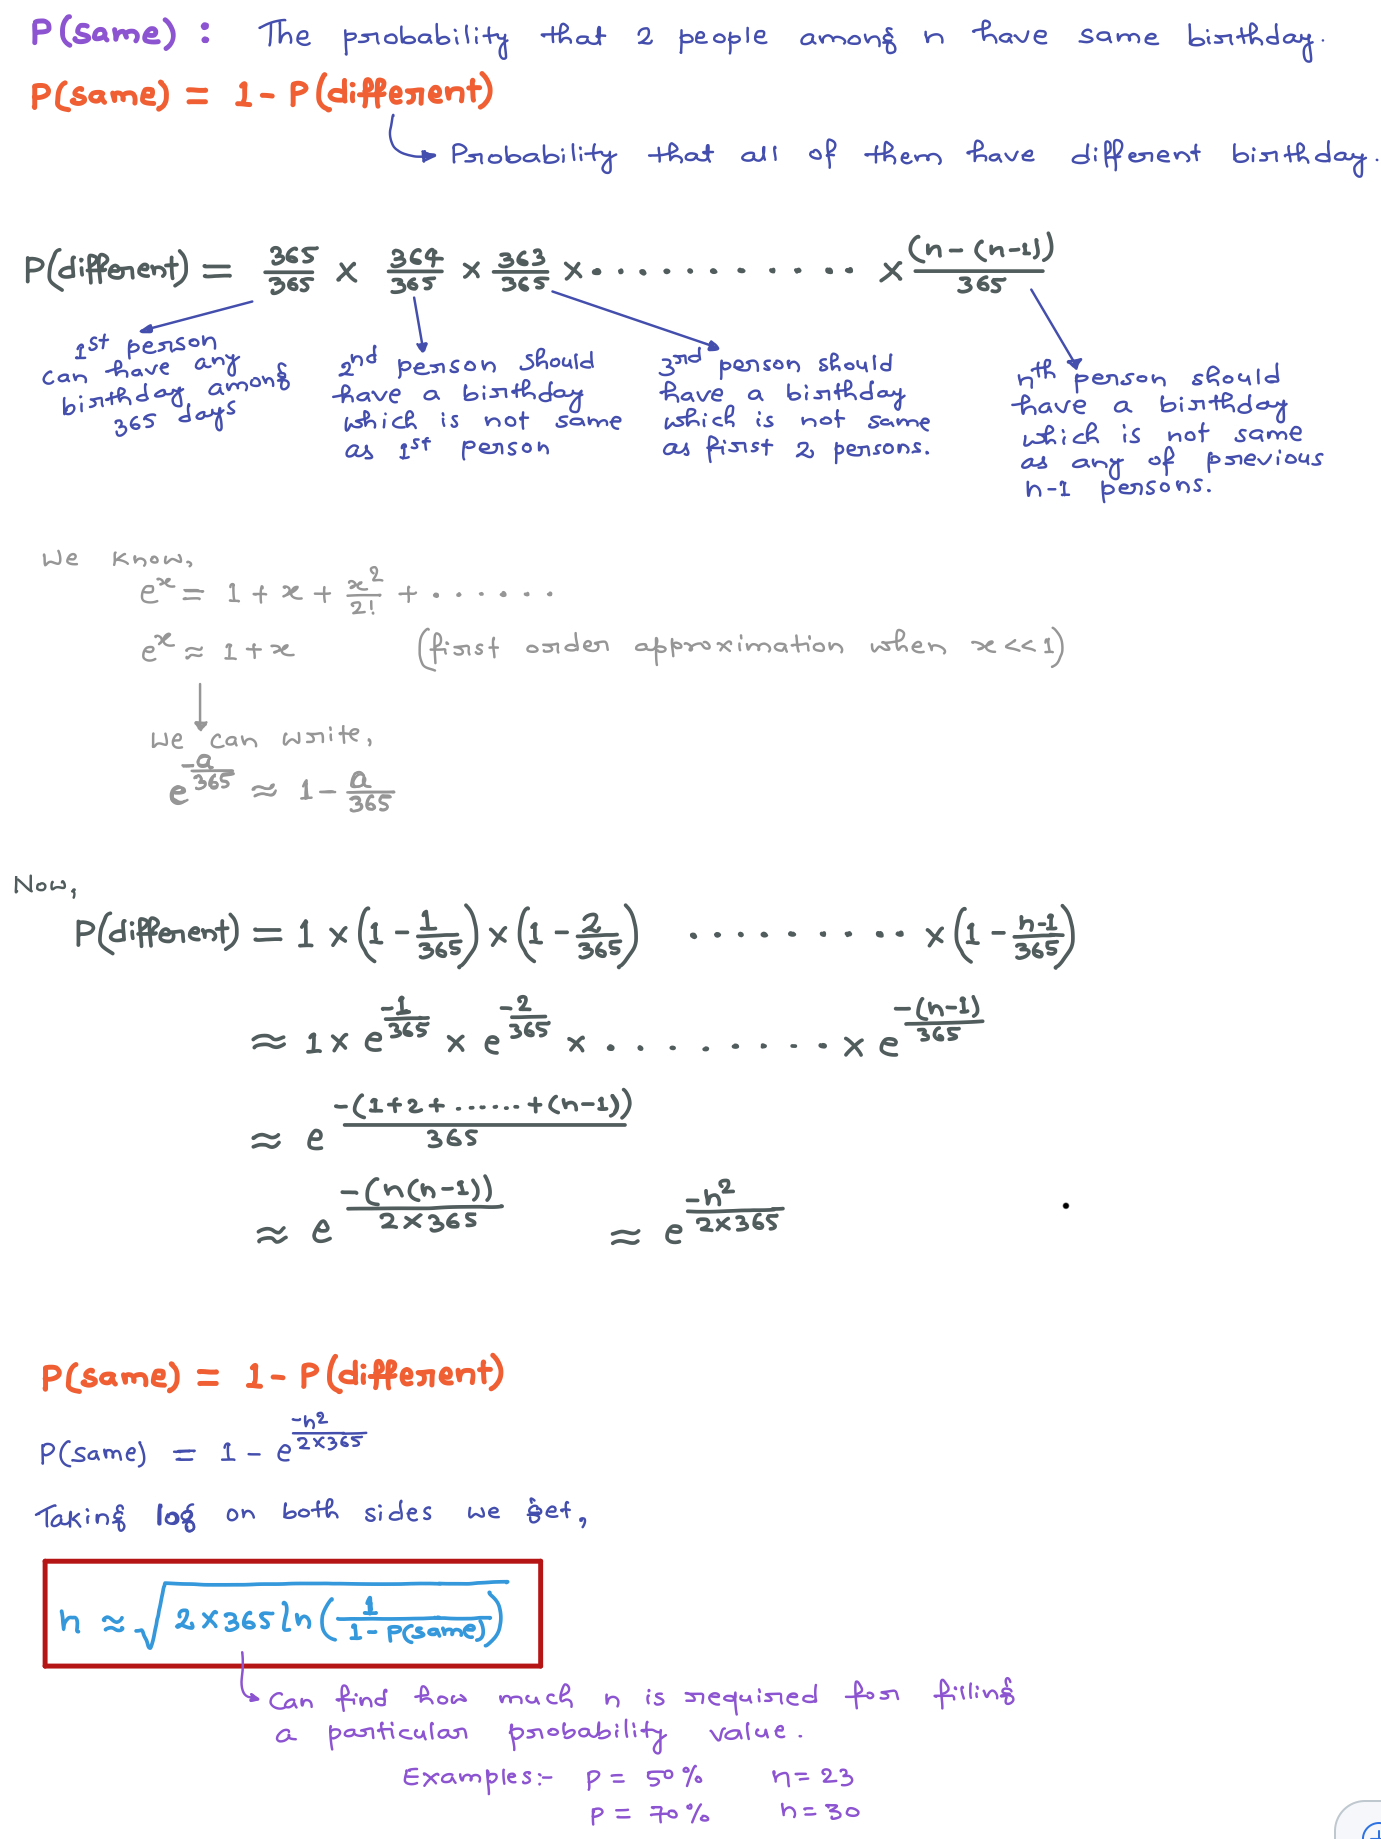 P(same) : The probability that 2 people among n have same birthday.
P(same) = 1 - P(different)
Probability that all of them have different birthday.
P(different) = 365/365 × 364/365 × 363/365 × ............ × (n - (n-1))/365
1st person
can have any
birthday among
365 days
2nd person should
have a birthday
which is not same
as 1st person
3rd person should
have a birthday
which is not same
as first 2 persons.
nth person should
have a birthday
which is not same
as any of previous
n-1 persons.
We know,
e^x = 1 + x + x^2/2! + ......
e^x ≈ 1 + x (first order approximation when x << 1)
We can write,
e^(-a/365) ≈ 1 - a/365
Now,
P(different) = 1 × (1 - 1/365) × (1 - 2/365) ......... × (1 - (n-1)/365)
≈ 1 × e^(-1/365) × e^(-2/365) × ......... × e^(-(n-1)/365)
≈ e^(-(1+2+......+(n-1))/365)
≈ e^(-(n(n-1))/(2×365)) ≈ e^(-n^2/(2×365))
P(same) = 1 - P(different)
P(same) = 1 - e^(-n^2/(2×365))
Taking log on both sides we get,
n ≈ √(2×365 ln(1/(1-P(same))))
Can find how much n is required for filling
a particular probability value.
Examples:- P = 50% n = 23
P = 70% n = 30